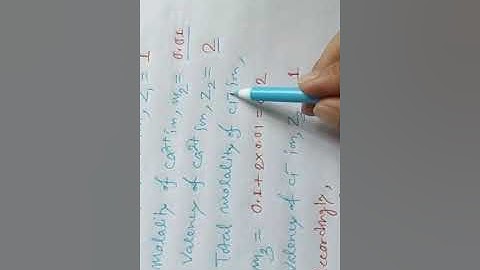 , Z₁ = 1
molality of Ca²⁺ ion, m₂ = 0.01
Valency of Ca²⁺ ion, Z₂ = 2
Total molality of Cl⁻ ion,
m₃ = 0.1 + 2×0.01 = 2
Valency of Cl⁻ ion, Z 1
ccordingly,